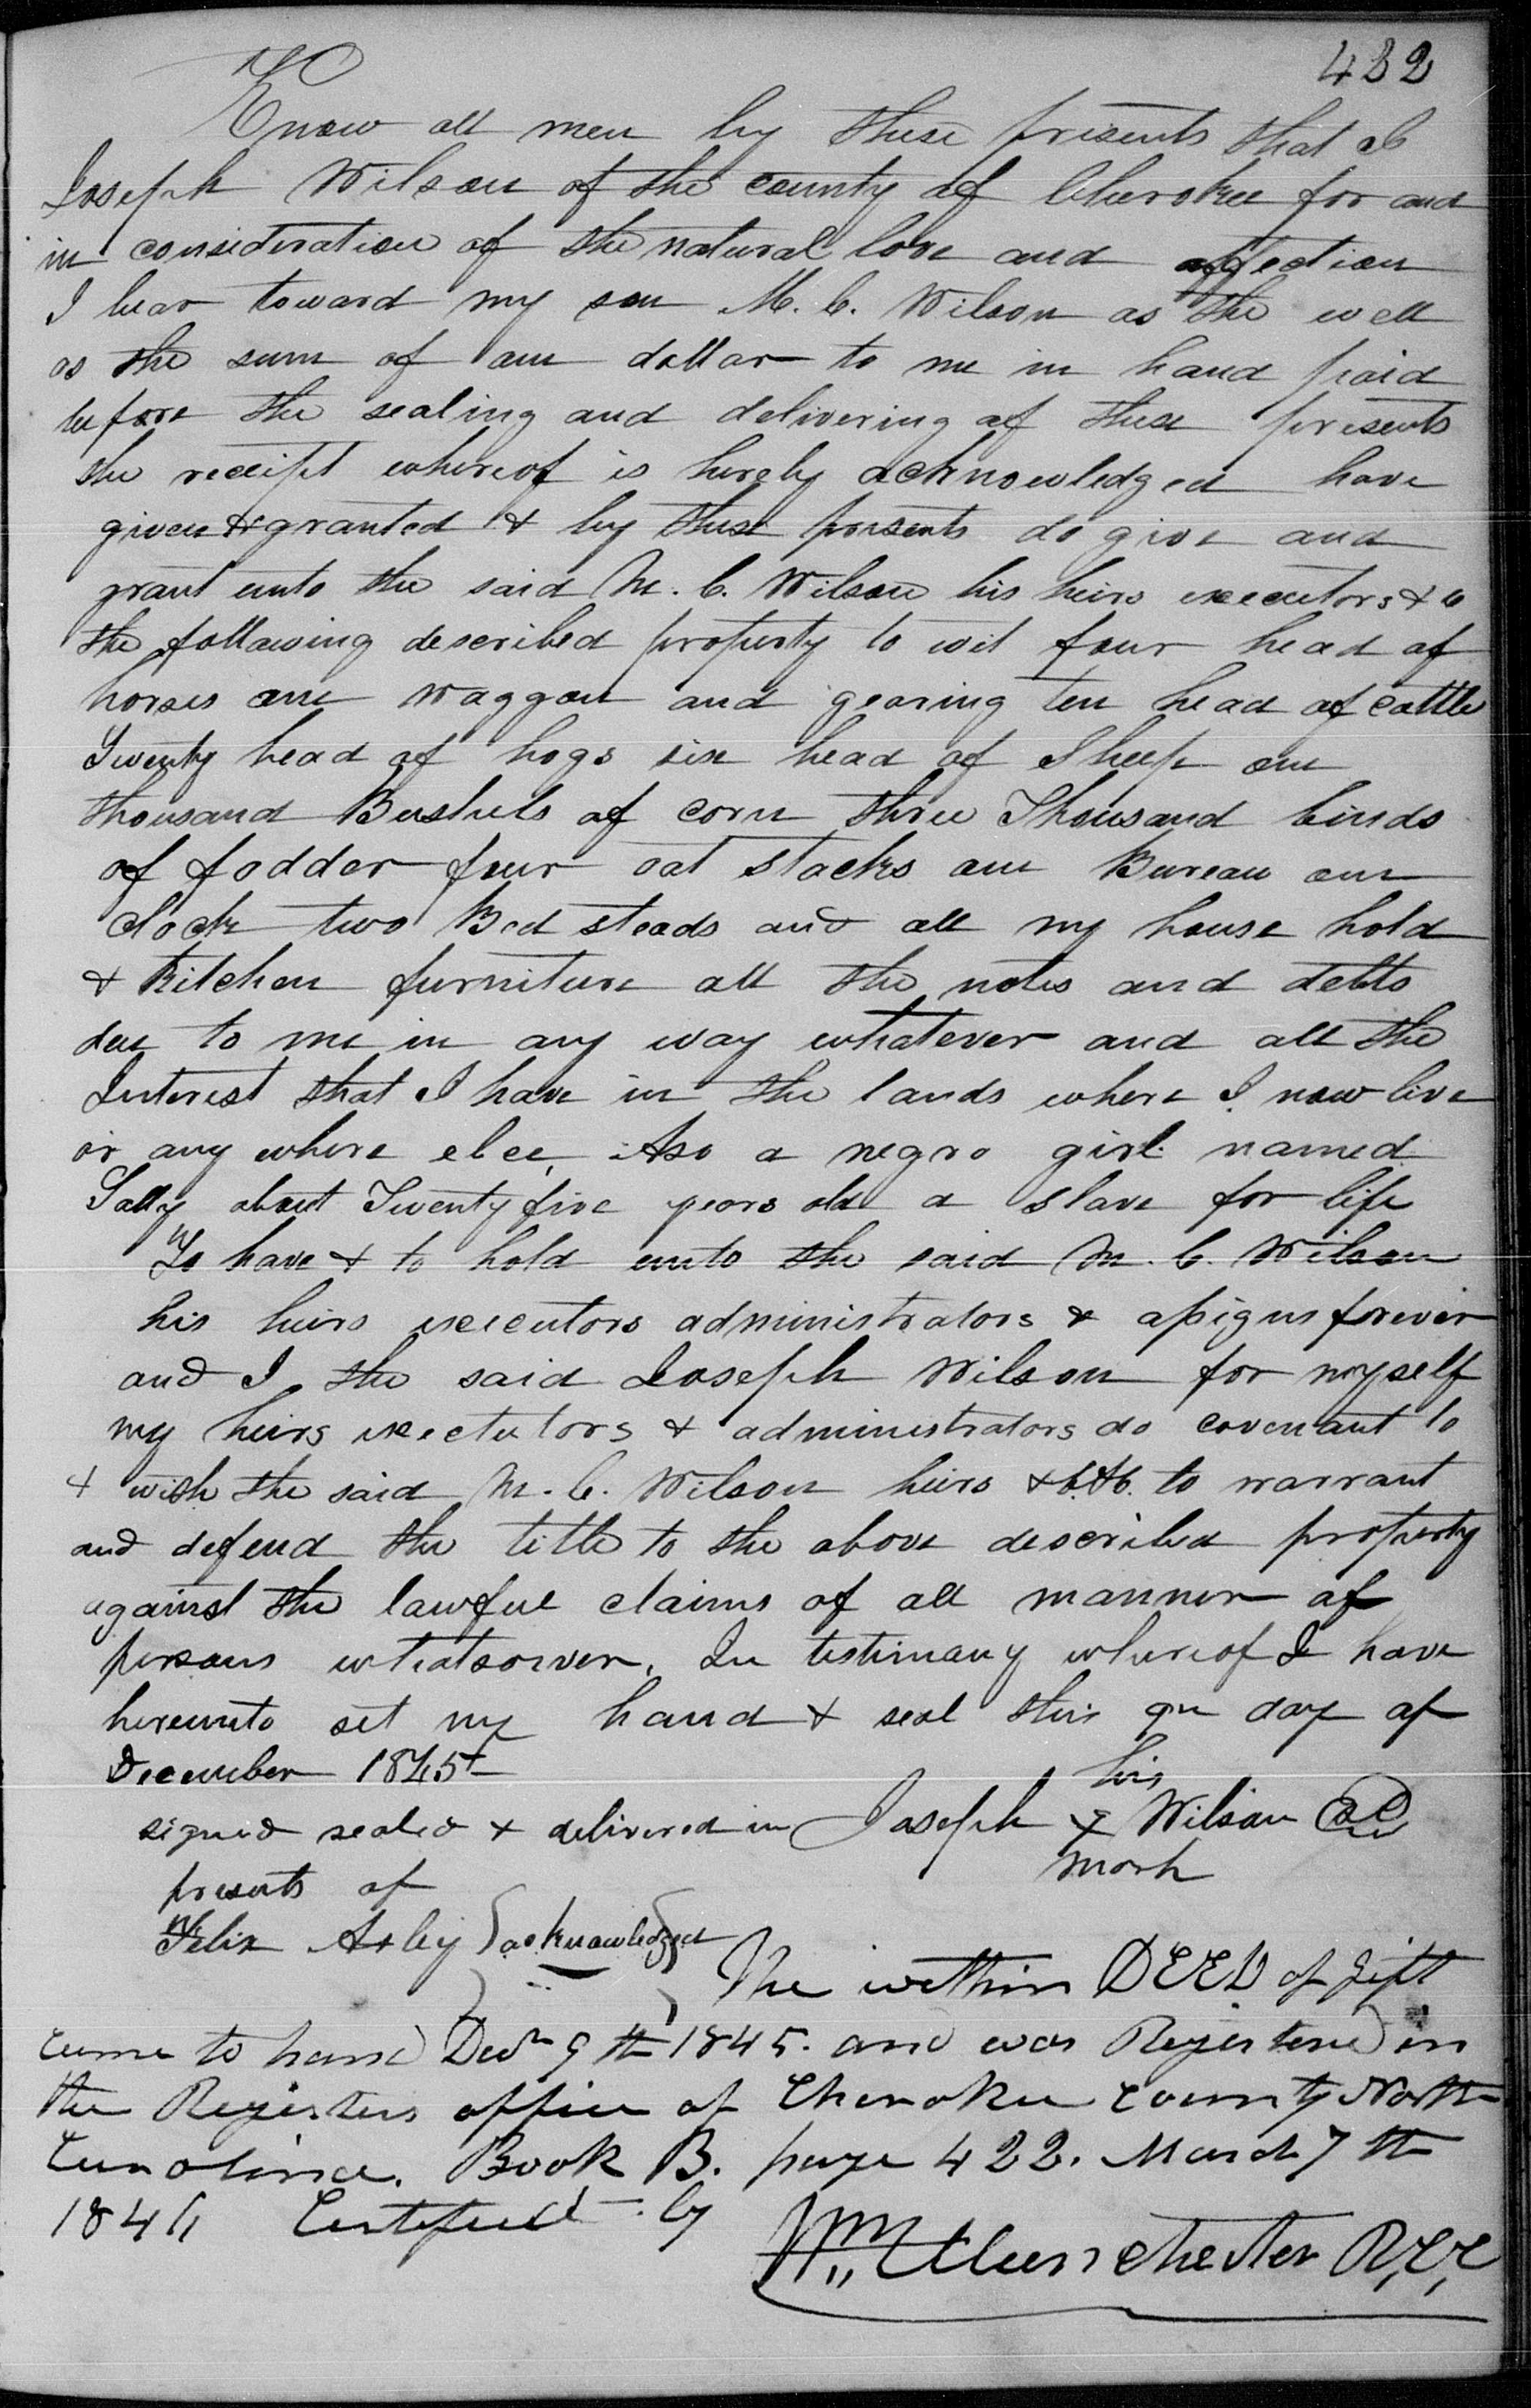 422
Know all men by these presents that I
Joseph Wilson of the county of Cherokee for and
in consideration of the natural love and affection
I bear toward my son M. C. Wilson as the well
as the sum of one dollar to me in hand paid
before the sealing and delivering of these presents
the receipt whereof is hereby acknowledged have
given & granted & by these presents do give and
grant unto the said M. C. Wilson his heirs executors & c
the following described property to wit four head of
horses one waggon and gearing ten head of cattle
Twenty head of hogs six head of Sheep one
thousand Bushels of corn three Thousand binds
of fodder four oat stacks one Bureau one
clock two Bed steads and all my house hold
& Kitchen furniture all the notes and debts
due to me in any way whatever and all the
Interest that I have in the lands where I now live
or any where elce, Also a negro girl named
Sally about Twenty five years old a slave for life
To have & to hold unto the said M. C. Wilson
his heirs executors administrators & assigns forever
and I the said Joseph Wilson for myself
my heirs exectutors & administrators do covenant to
& with the said M. C. Wilson heirs &c. &c. to warrant
and defend the title to the above described property
against the lawful claims of all manner of
persons whatsoever. In testimony whereof I have
hereunto set my hand & seal this day of
December 1845
his
signed sealed & delivered in Joseph X Wilson
mark
presents of
Felix Axley acknowledged
The within DEED of gift
came to hand Decr 9th 1845. and was Registered in
the Registers office of Cherokee County North
Carolina. Book B. page 422. March 7th
1846 Certifued by
Wm Manchester R,C,C,